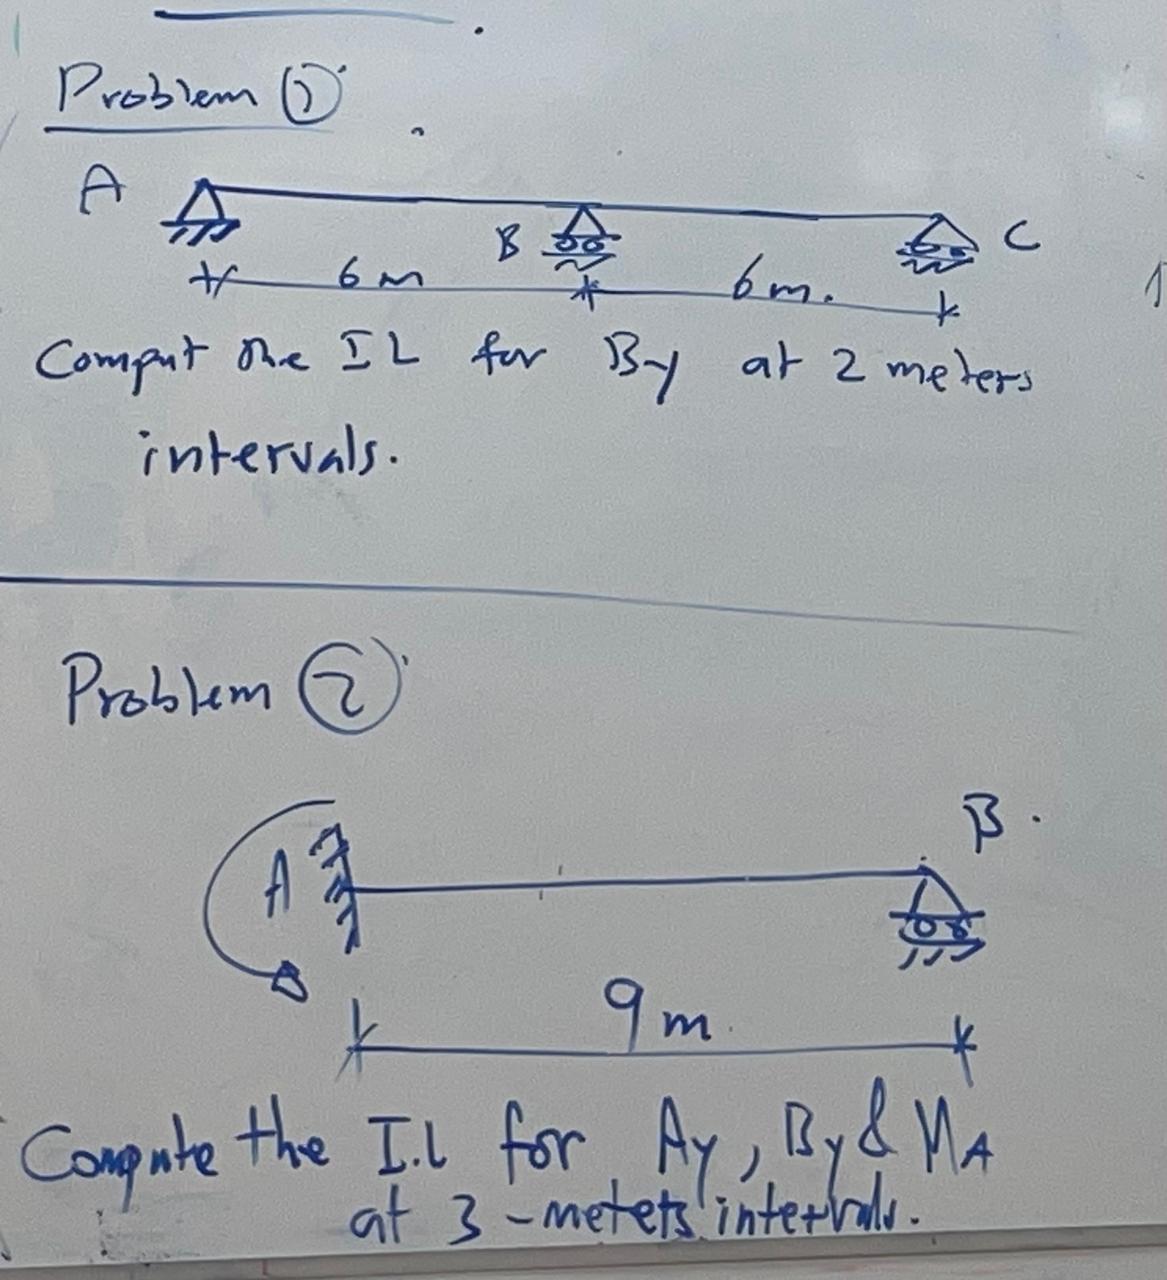 Problem ①
A
B
C
6 m
6 m.
Comput the IL for By at 2 meters
intervals.
Problem ②
B.
A
9 m.
Compute the I.L for Ay, By & MA
at 3-meters intervals.